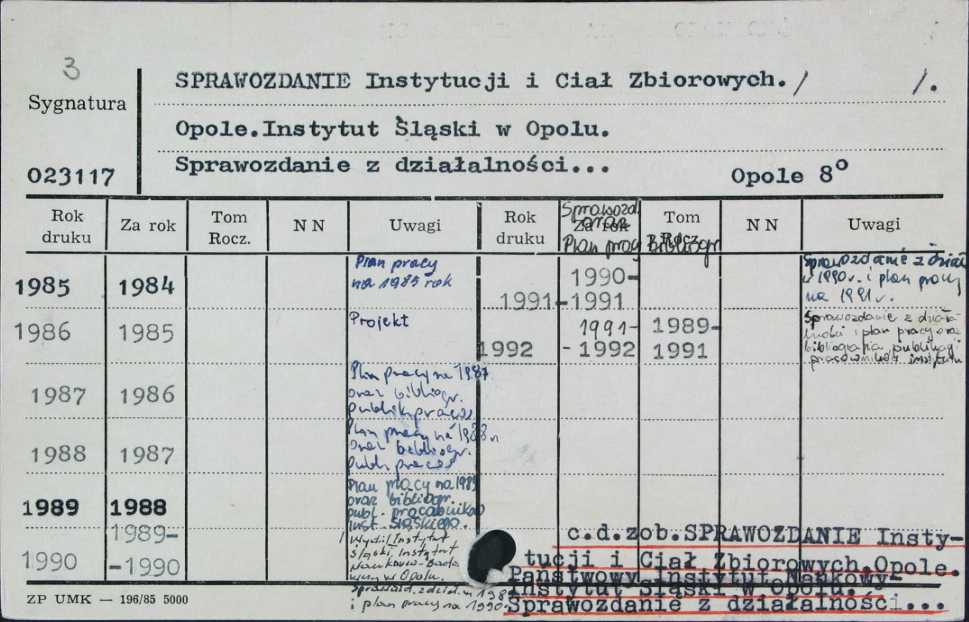 3
SPRAWOZDANIE Instytucji i Ciał Zbiorowych./ /.
Sygnatura
Opole.Instytut Śląski w Opolu.
Sprawozdanie z działalności...
023117
Opole 8°
Rok druku Za rok Tom Rocz. NN Uwagi Rok druku Za rok Tom Rocz. NN Uwagi
Sprawozd.
Plan pracy Bibliogr.
1985 1984 Plan pracy
na 1985 rok
1991 1990-
-1991
Sprawozdanie z dział.
w 1990r. i plan pracy
na 1991r.
1986 1985 Projekt
1992 1991-
-1992 1989-
1991
Sprawozdanie z działa-
lności i plan pracy oraz
bibliografia publikacji
pracowników instytutu
1987 1986 Plan pracy na 1987
oraz bibliogr.
publik. pracow.
1988 1987 Plan pracy na 1988 r.
oraz bibliogr.
publ. pracow.
1989 1988 Plan pracy na 1989
oraz bibliogr.
publ. pracowników
Inst. Śląskiego.
1990 1989-
-1990
Wydał Instytut
Śląski. Instytut
Naukowo-Badaw
czy w Opolu.
Sprawozd. z dział. w 1989
i plan pracy na 1990.
c.d.zob.SPRAWOZDANIE Insty-
tucji i Ciał Zbiorowych.Opole.
Państwowy Instytut Naukowy-
Instytut Śląski w Opolu.
Sprawozdanie z działalności...
ZP UMK — 196/85 5000